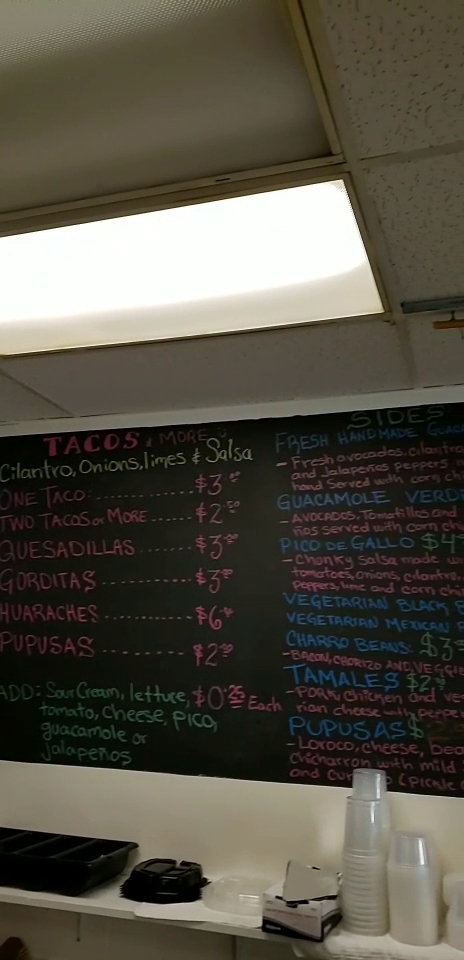 TACOS & MORE
Cilantro, Onions, limes & Salsa
ONE TACO: $3.00
TWO TACOS or MORE $2.50
QUESADILLAS $3.00
GORDITAS $3.00
HUARACHES $6.00
PUPUSAS $2.50
ADD: Sour Cream, lettuce, $0.25 Each
tomato, cheese, pico,
guacamole or
jalapeños
SIDES
FRESH HANDMADE
- Fresh avocados, cilantro
and Jalapeños peppers
hand Served with corn
GUACAMOLE
- AVOCADOS, Tomatillos and
served with corn
PICO DE GALLO $4
- Chonky Salsa made
tomatoes, onions, cilantro,
peppers, lime and corn
VEGETARIAN BLACK
VEGETARIAN MEXICAN
CHARRO BEANS: $3
- BACON, CHORIZO AND
TAMALES $2
- PORK, Chicken and
cheese with
PUPUSAS $
- Loroco, cheese,
chicharron with mild
and